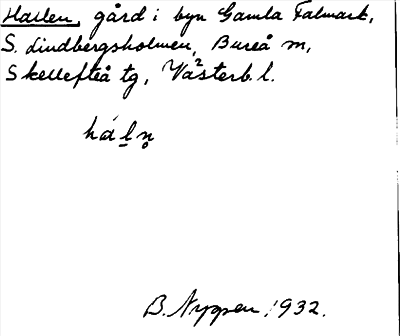 Hallen, gård i byn Gamla Falmark,
S. Lindbergsholmen, Bureå m,
Skellefteå tg, Västerb. l.
B. Nygren, 1932.